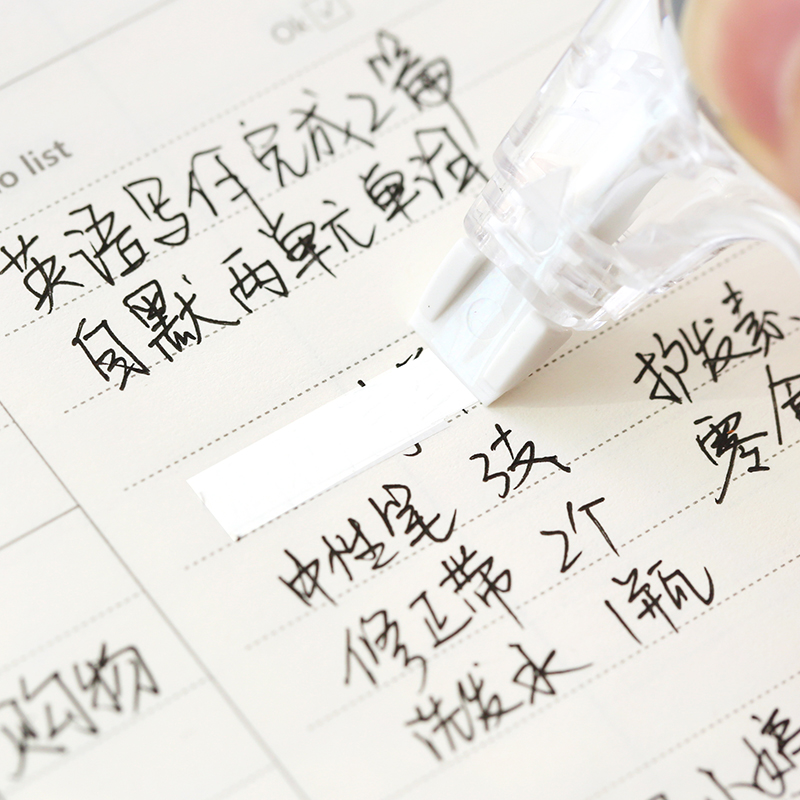 Ok
o list
英语写作完成2篇
自默两单元单词
中性笔 3支
修正带 2个
洗发水 1瓶
护发素
零食
购物